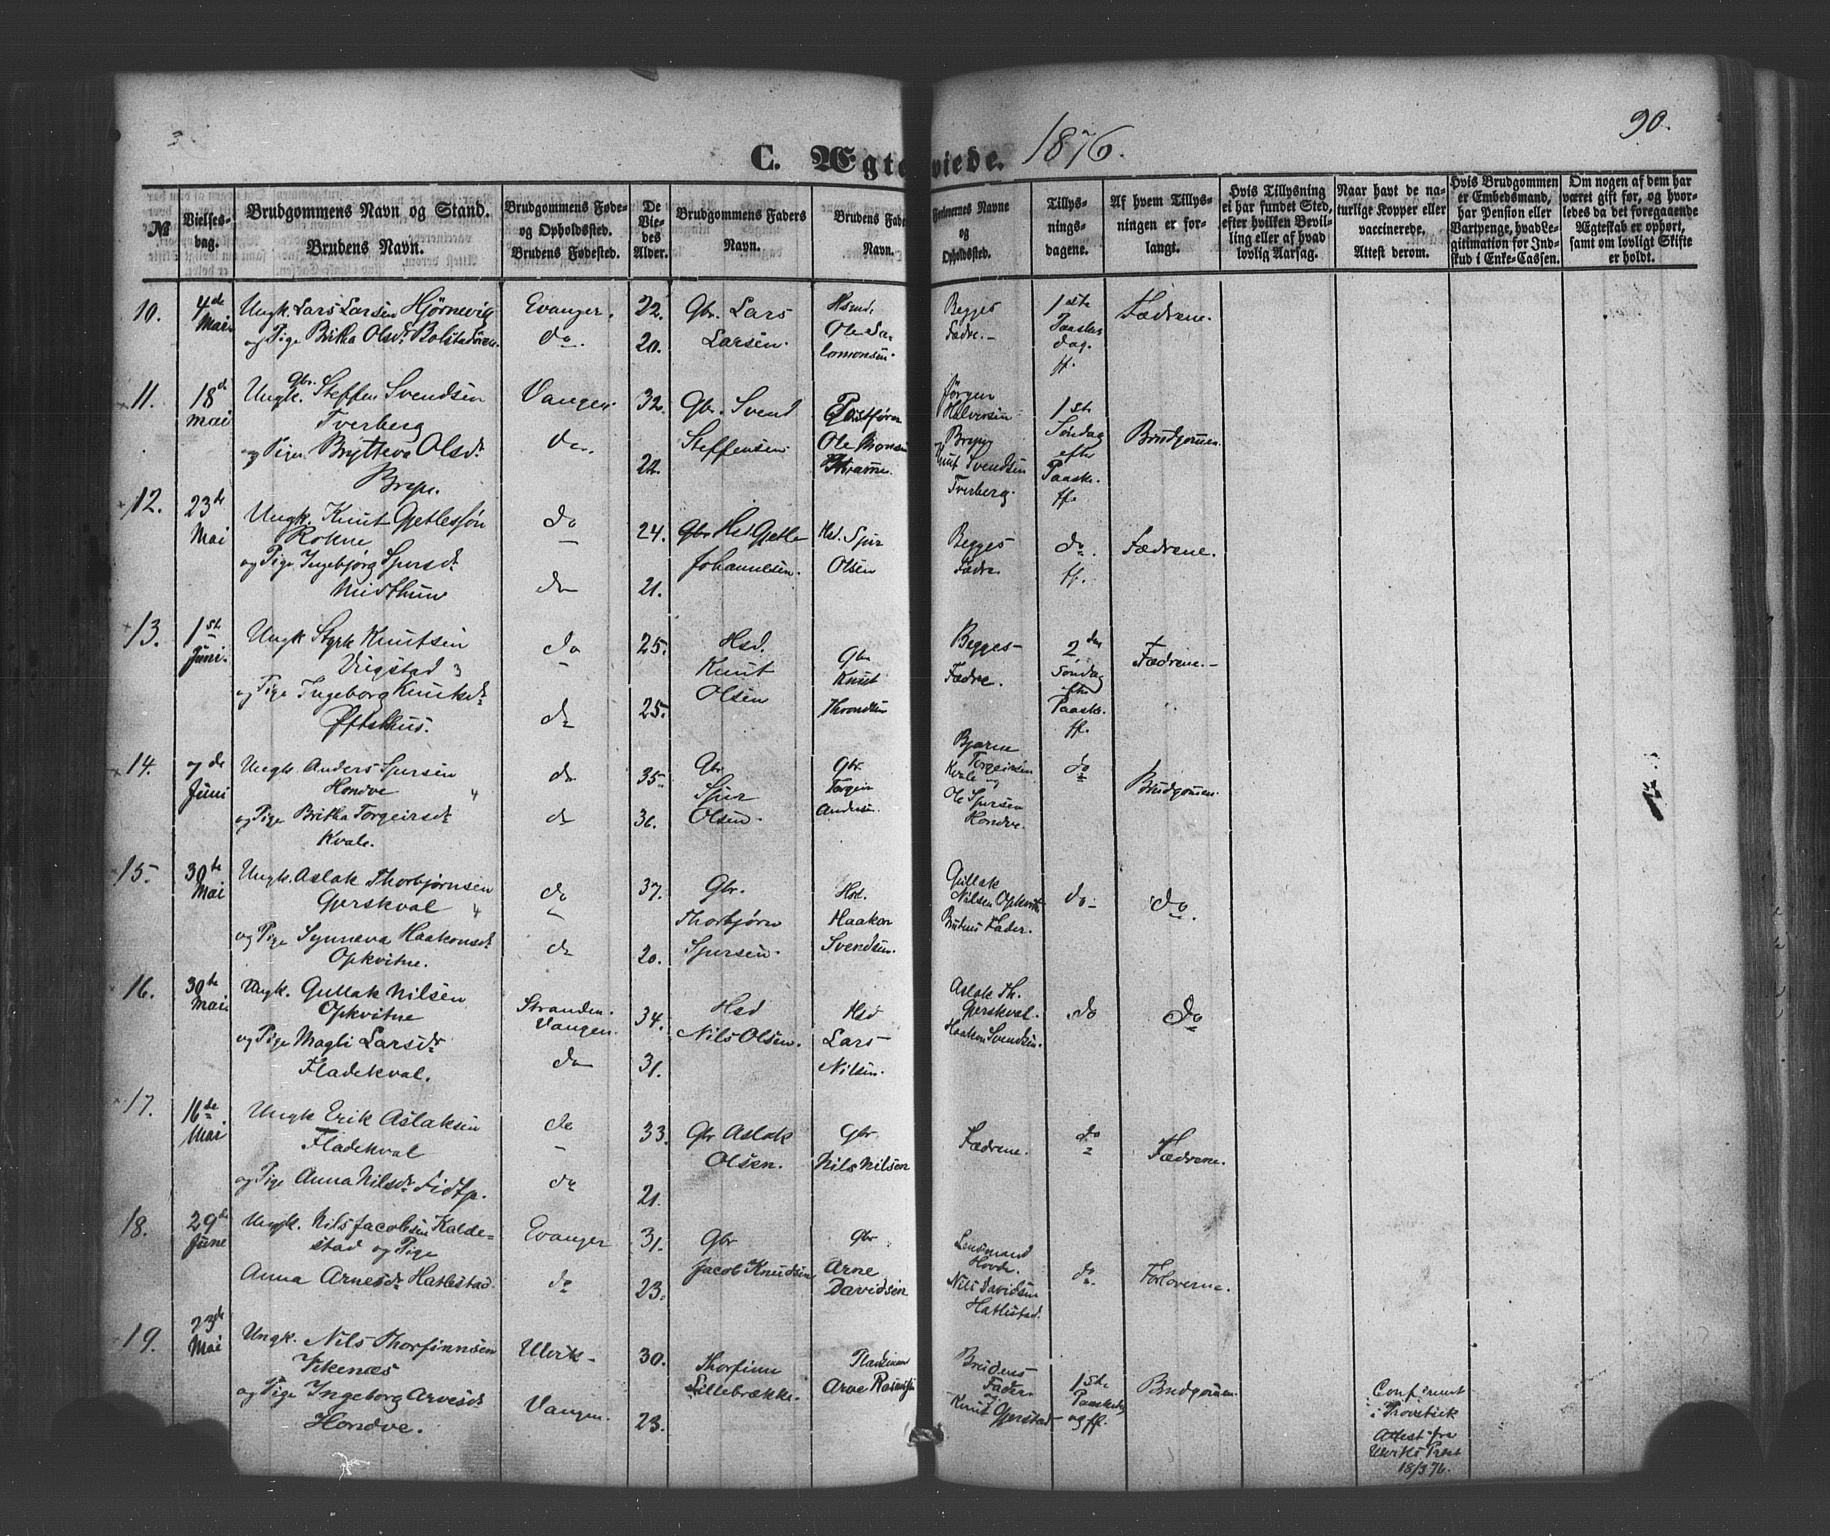 90.
C. Ægteviede. 1876.
№
Vielses-
dag.
Brudgommens Navn og Stand.
Brudens Navn.
Brudgommens Føde-
og Opholdssted.
Brudens Fødested.
De
Vie-
des
Alder.
Brudgommens Faders
Navn.
Brudens Fad
Navn.
Forlovernes Navne
og
Opholdssted.
Tillys-
nings-
dagene.
Af hvem Tillys-
ningen er for-
langt.
Hvis Tillysning
ei har fundet Sted,
efter hvilken Bevil-
ling eller af hvad
lovlig Aarsag.
Naar havt de na-
turlige Kopper eller
vaccinerede.
Attest derom.
Hvis Brudgommen
er Embedsmand,
har Pension eller
Vartpenge, hvad Le-
gitimation for Ind-
skud i Enke-Cassen.
Om nogen af dem har
været gift før, og hvor-
ledes da det foregaaende
Ægteskab er ophørt,
samt om lovligt Skifte
er holdt.
10. 4de Mai
Ungk. Lars Larsen Hjørnevig
og Pige Britha Olsdr Bolstadøren.
Evanger.
do.
22.
20.
Gbr. Lars
Larsen.
Hsmd.
Ole Sa-
lomonsen.
Begges
Fædre.
1ste
Paaske
dag.
ff.
Fædrene.
11. 18d Mai
Gbr.
Ungk. Steffen Svendsen
Tverberg
og Pige Brytteva Olsdr
Vangen.
do.
32.
22.
Gbr. Svend
Steffensen
Ole Monsen
Jørgen
Halversen
Knut Svendsen
Tverberg.
1ste
Søndag
efter
Paaske.
ff.
Brudgommen.
12. 23de Mai
Ungk. Knut Gjetlessøn
Rokne
og Pige Ingebjørg Spersdr
Midthun
do
do
24.
21.
Gbr Hsd Gjetle
Johannesen.
Hsd. Sjur
Olsen
Begges
Fædre.
do.
ff.
Fædrene.
13. 1ste Juni.
Ungk Styrk Knutsen
og Pige Ingeborg Knutsdr
do
do
25.
25.
Hsd.
Knut
Olsen
Gbr
Knut
Begges
Fædre.
2den
Søndag
efter
Paaske.
ff.
Fædrene.
14. 7de Juni
Ungk Anders Spersen
Hondve
og Pige Britha Torgeirsdr
Kvale.
do
do
35
Gbr.
Sjur
Olsen.
Gbr.
Torgeir
Andersen.
Bjarne
Torgeirsen
Kvale og
Ole Spersen
Hondve.
do
Brudgommen.
15. 30te Mai
Ungk. Aslak Thorbjørnsen
Gjerskval
og Pige Synneva Haakonsdr
Opkvitne.
do
do
37.
20.
Gbr.
Thorbjørn
Spersen.
Hsd.
Haakon
Svendsen.
Gullak
Nilsen Opkvitne
Brudens Fader.
do
do.
16. 30te Mai
Ungk. Gullak Nilsen
Opkvitne
og Pige Magli Larsdr
Fladekval.
Stranden.
Vangen.
do
34.
31.
Hsd
Nils Olsen.
Hsd
Lars
Nilsen.
Aslak Th.
Gjerskval.
Haakon Svendsen.
do
do
17. 16de Mai
Ungk Erik Aslaksen
Fladekval
og Pige Anna Nilsdr
do
do
33.
21.
Gbr Aslak
Olsen.
Gbr
Nils Nilsen
Fædrene.
do
Fædrene.
18. 29de June
Ungk. Nils Jacobsen Kalde-
stad og Pige
Anna Arnesdr Hatlestad.
Evanger
do
31.
23.
Gbr
Jacob Knudsen
Gbr
Arne
Davidsen
Lensmand
Hovde.
Nils Davidsen
Hatlestad.
do.
Forloverne.
19. 23de Mai
Ungk. Nils Thorfinnsen
Vikenæs
og Pige Ingeborg Arvesdr
Hondve.
Ulvik
Vangen.
30.
23.
Thorfinn
Lillebrække.
Arve
Brudens
Fader
og
Knut Gjerstad
1ste
Paaskedag
og ff.
Brudgommen.
Attest fra
Ulviks Prest
18/5 76.